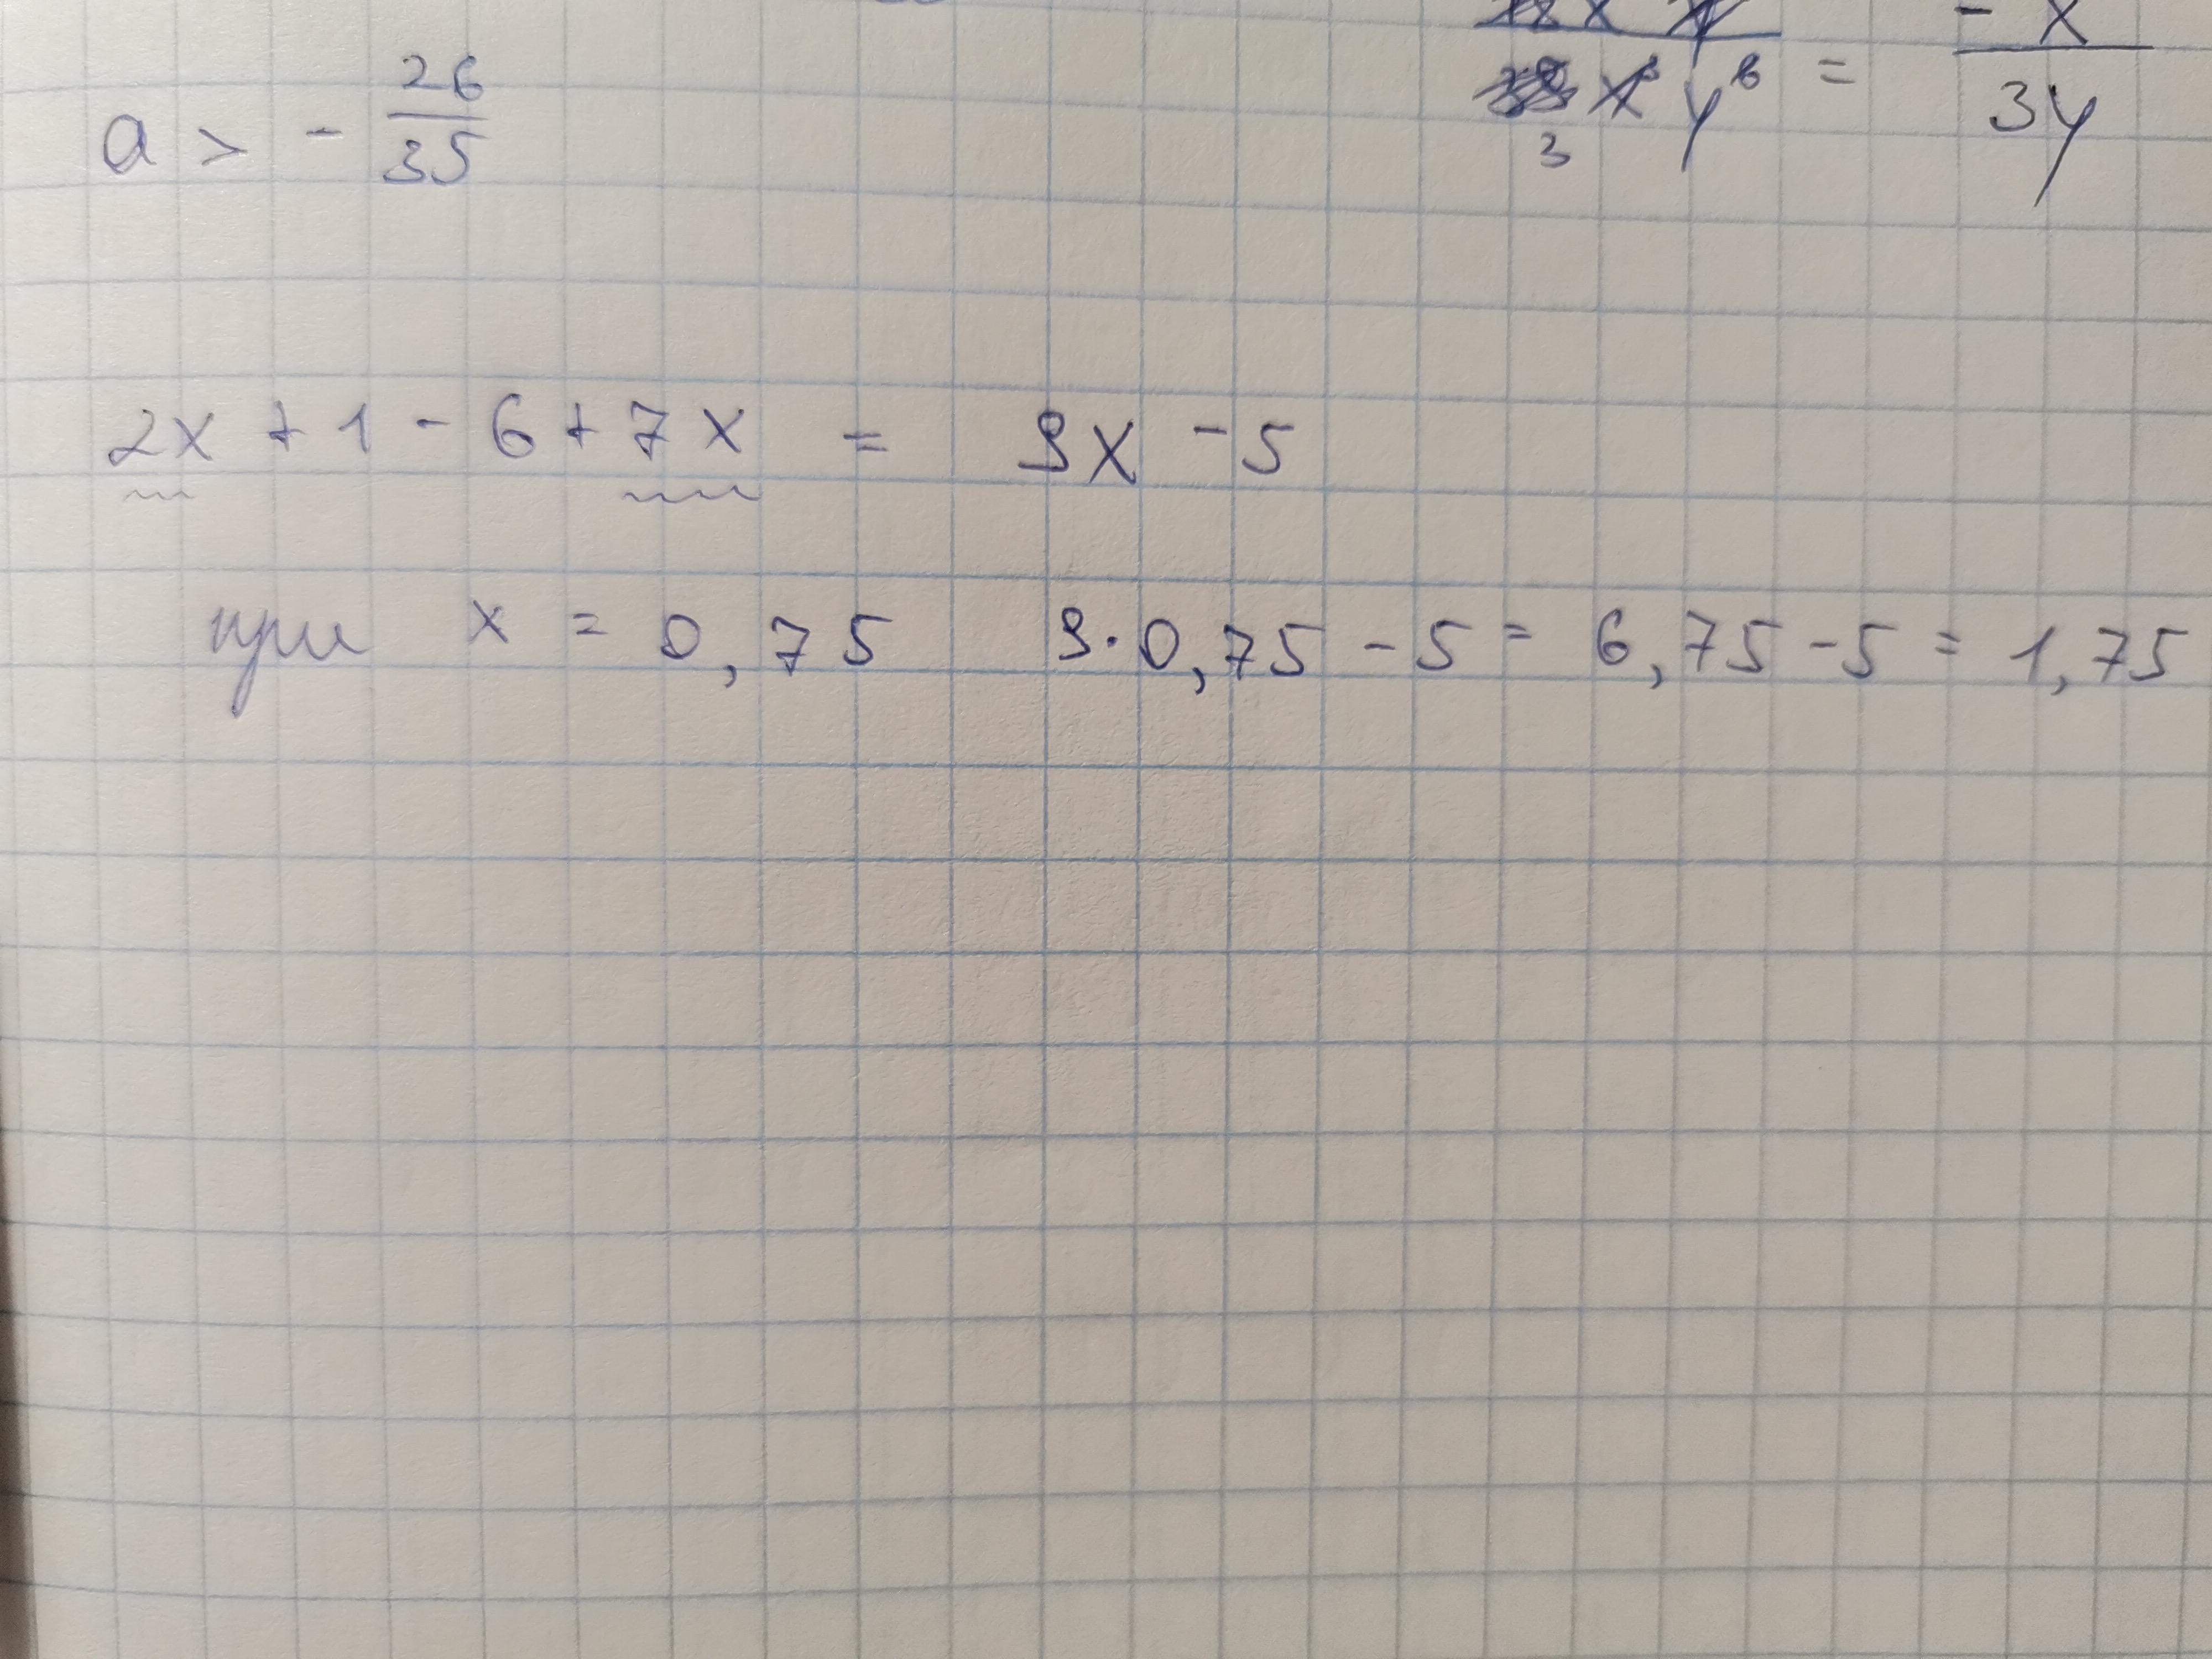 a > - 26/35
3 x³ y⁶ = - x / 3y
2x + 1 - 6 + 7x = 9x - 5
при x = 0,75 9·0,75 - 5 = 6,75 - 5 = 1,75